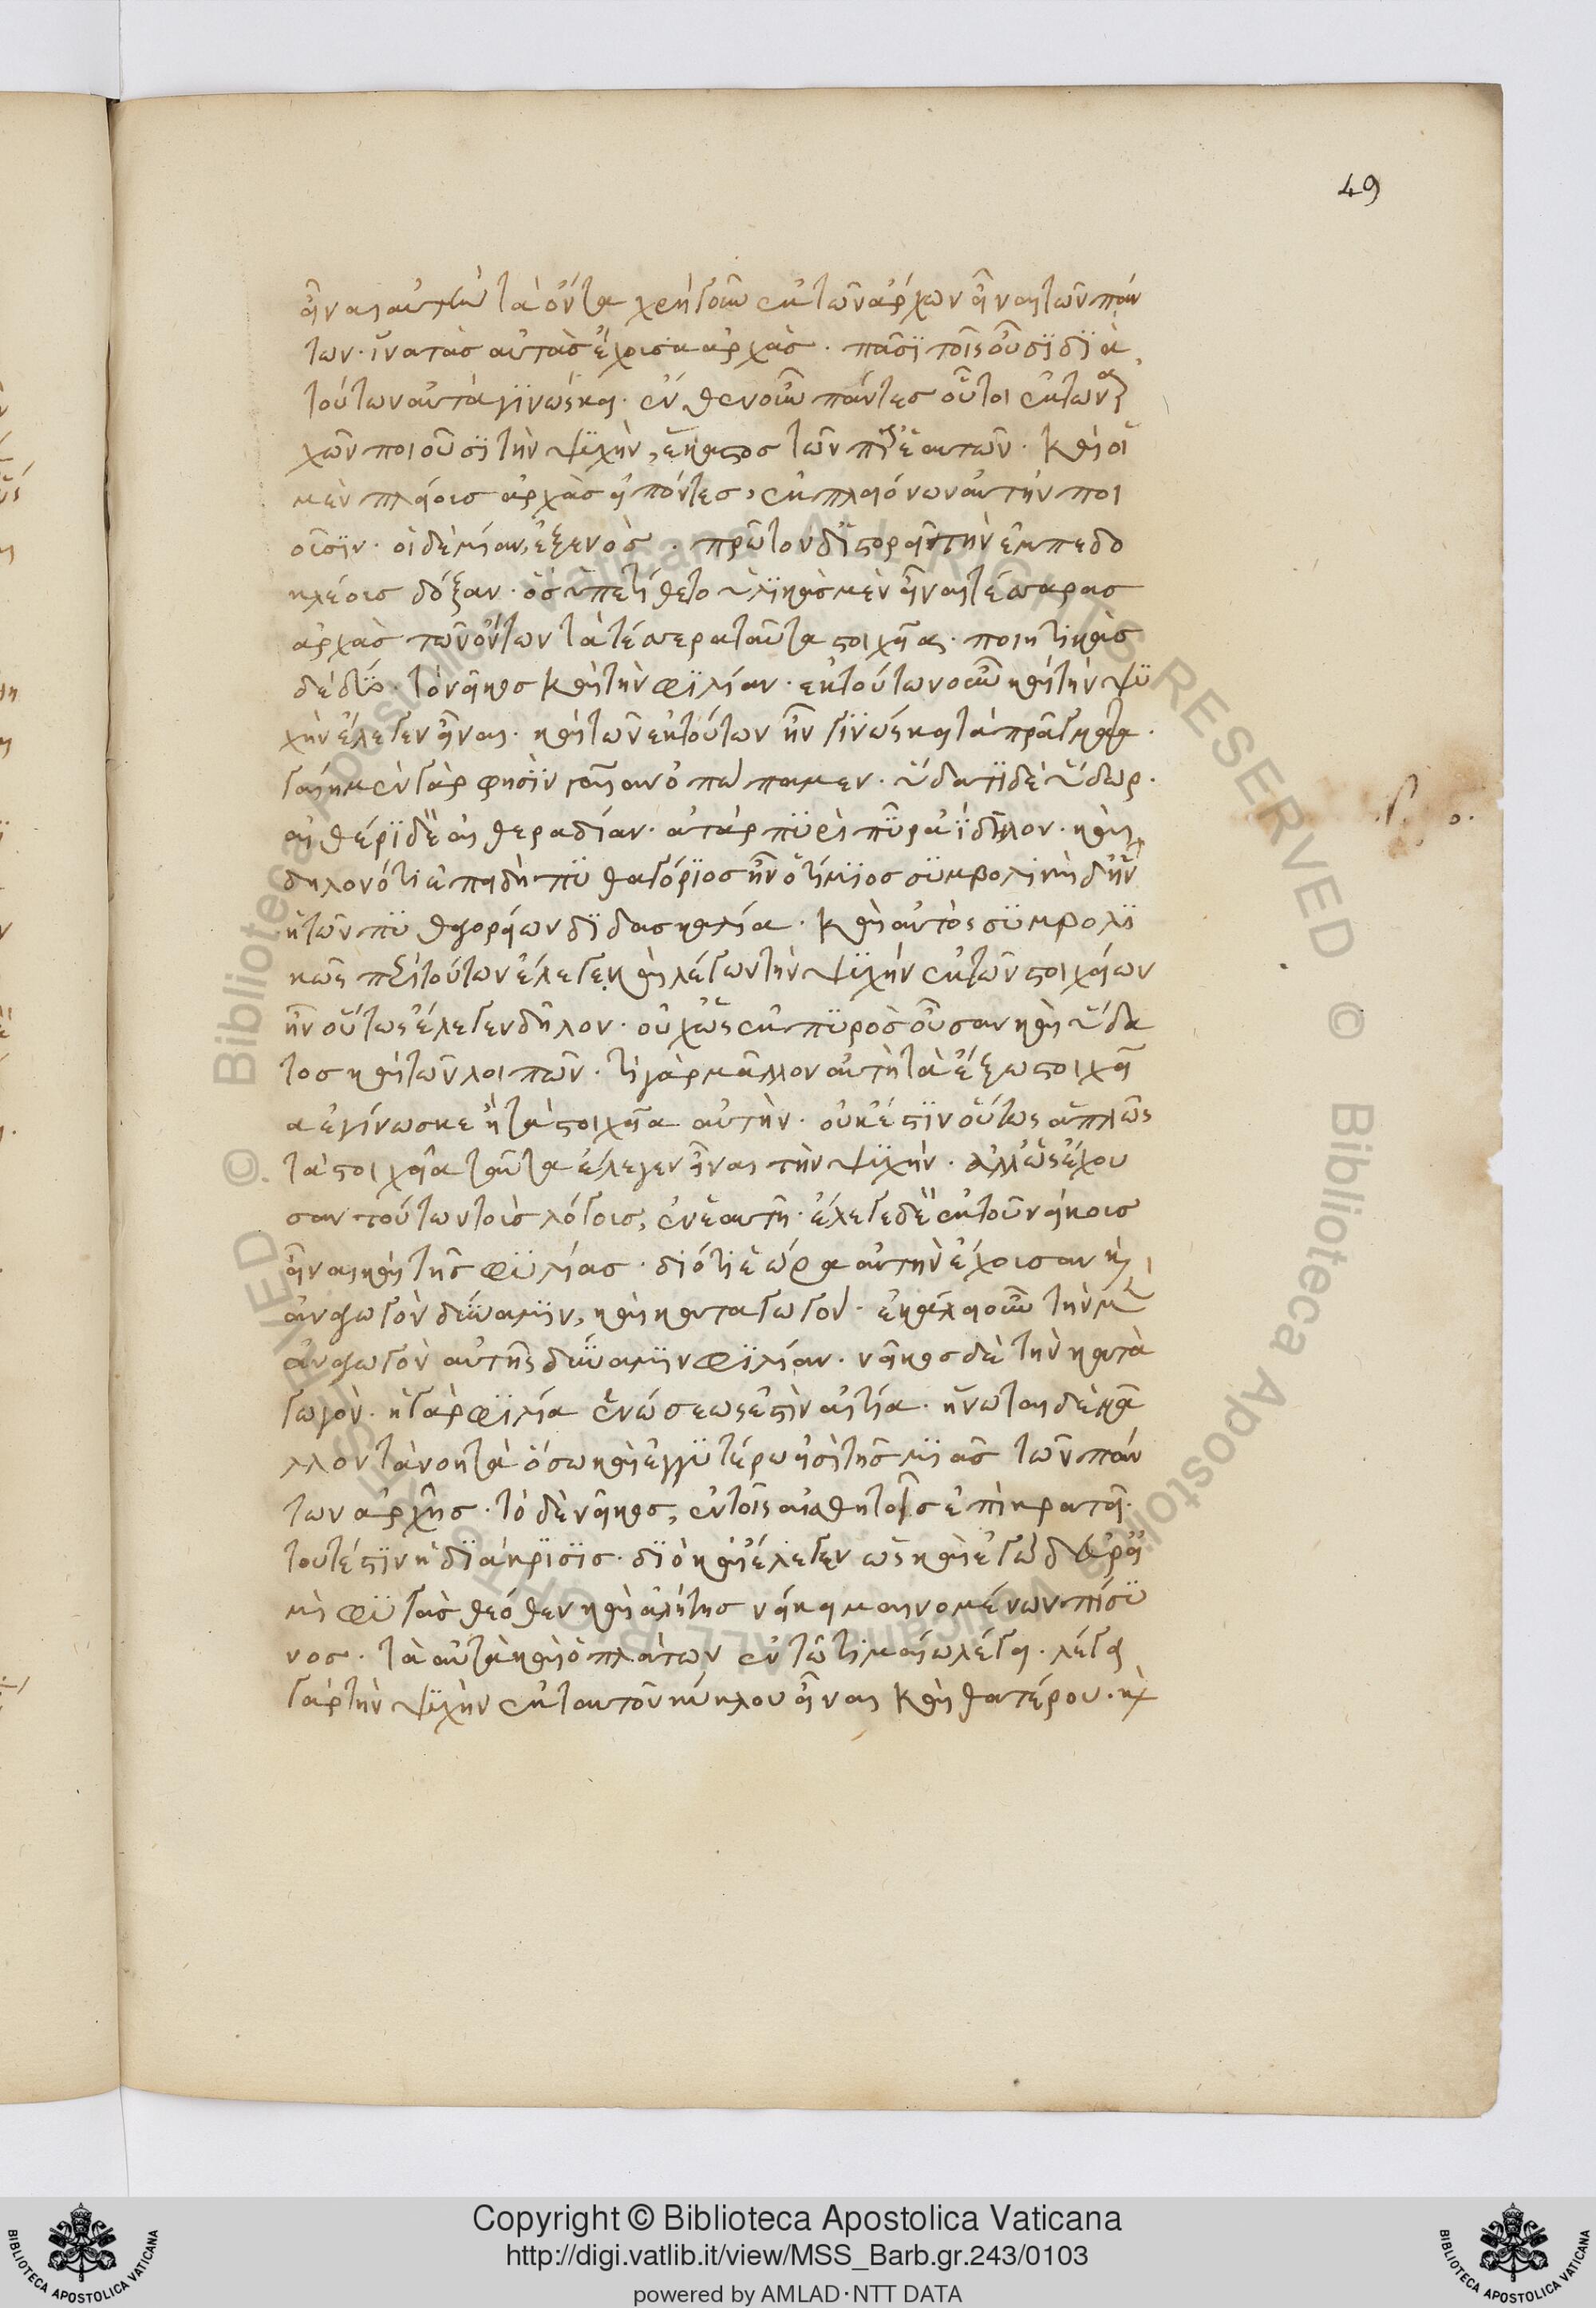 49
εἶναι αὐτὴν τὰ ὄντα χρὴ οὖν ἐκ τῶν ἀρχῶν εἶναι τῶν πάν
των· ἵνα τὰς αὐτὰς ἔχουσα ἀρχὰς· πᾶσι τοῖς οὖσι διὰ
τούτων αὐτὰ γινώσκῃ· ἐντεῦθεν οὖν πάντες οὗτοι ἐκ τῶν ἀρ
χῶν ποιοῦσι τὴν ψυχὴν, ἕκαστος τῶν παρ' ἑαυτῶν· καὶ οἱ
μὲν πλείους ἀρχὰς εἰπόντες, ἐκ πλειόνων αὐτὴν ποι
οῦσιν· οἱ δὲ μίαν, ἐξ ἑνὸς· πρῶτον δὲ ἱστορεῖ τὴν ἐμπεδο
κλέους δόξαν· ὃς ὑπετίθετο ὑλικὰς μὲν εἶναι τέσσαρας
ἀρχὰς τῶν ὄντων τὰ τέσσερα ταῦτα στοιχεῖα· ποιητικὰς
δὲ δύο· τὸ νεῖκος καὶ τὴν φιλίαν· ἐκ τούτων οὖν καὶ τὴν ψυ
χὴν ἔλεγεν εἶναι· καὶ τῶν ἐκ τούτων ἦν γινώσκει τὰ πράγματα·
γαίῃ μὲν γάρ φησιν γαῖαν ὀπώπαμεν· ὕδατι δὲ ὕδωρ·
αἰθέρι δὲ αἰθέρα δίαν· ἀτὰρ πυρὶ πῦρ ἀΐδηλον· καὶ
δῆλον ὅτι ἐπειδὴ πυθαγόρειος ἦν ὁ τίμιος συμβολικὴ δ' ἦν
ἡ τῶν πυθαγορείων διδασκαλία· καὶ αὐτὸς συμβολι
κῶς περὶ τούτων ἔλεγε, καὶ λέγων τὴν ψυχὴν ἐκ τῶν στοιχείων
ἦν οὕτως ἔλεγεν δῆλον· οὐχ ὡς ἐκ πυρὸς οὖσαν καὶ ὕδα
τος καὶ τῶν λοιπῶν· τί γὰρ μᾶλλον αὐτὴ τὰ ἔξω στοιχεῖ
α ἐγίνωσκε ἢ τὰ στοιχεῖα αὐτὴν· οὐκ ἔστιν οὕτως ἁπλῶς
τὰ στοιχεῖα ταῦτα ἔλεγεν εἶναι τὴν ψυχὴν· ἀλλ' ὡς ἔχου
σαν τούτων τοὺς λόγους, ἐν ἑαυτῇ· ἔλεγε δὲ ἐκ τοῦ νείκους
εἶναι καὶ τῆς φιλίας· διότι ἑώρα αὐτὴν ἔχουσαν καὶ
ἀναγωγὸν δύναμιν, καὶ καταγωγὸν· ἐκάλει οὖν τὴν μὲν
ἀναγωγὸν αὐτῆς δύναμιν φιλίαν· νεῖκος δὲ τὴν κατα
γωγὸν· ἡ γὰρ φιλία ἑνώσεως ἐστὶν αἰτία· ἥνωται δὲ μᾶ
λλον τὰ νοητὰ ὅσῳ καὶ ἐγγυτέρω εἰσὶ τῆς μιᾶς τῶν πάν
των ἀρχῆς· τὸ δὲ νεῖκος, ἐν τοῖς αἰσθητοῖς ἐπικρατεῖ·
τουτέστιν ἡ διάκρισις· διὸ καὶ ἔλεγεν ὡς καὶ ἐγὼ δεῦρ' εἰ
μὶ φυγὰς θεόθεν καὶ ἀλήτης νείκει μαινομένῳ πίσυ
νος· τὰ αὐτὰ καὶ ὁ πλάτων ἐν τῷ τιμαίῳ λέγει· λέγει
γὰρ τὴν ψυχὴν ἐκ ταυτοῦ κύκλου εἶναι καὶ θατέρου· καὶ
Copyright © Biblioteca Apostolica Vaticana
http://digi.vatlib.it/view/MSS_Barb.gr.243/0103
powered by AMLAD·NTT DATA